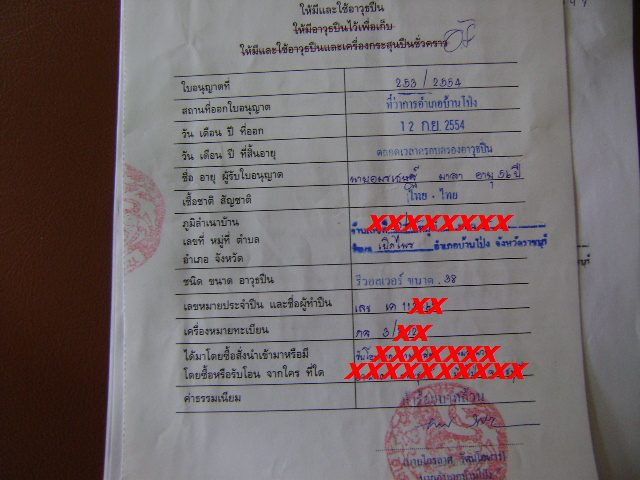 ให้มีและใช้อาวุธปืน
ให้มีอาวุธปืนไว้เพื่อเก็บ
ให้มีและใช้อาวุธปืนและเครื่องกระสุนปืนชั่วคราว
ใบอนุญาตที่ 253/2554
สถานที่ออกใบอนุญาต ที่ว่าการอำเภอบ้านโป่ง
วัน เดือน ปี ที่ออก 12 ก.ย. 2554
วัน เดือน ปี ที่สิ้นอายุ ตลอดเวลาครอบครองอาวุธปืน
ชื่อ อายุ ผู้รับใบอนุญาต มาลา อายุ 56 ปี
เชื้อชาติ สัญชาติ ไทย - ไทย
ภูมิลำเนาบ้าน XXXXXXXX
เลขที่ หมู่ที่ ตำบล เบิกไพร อำเภอบ้านโป่ง จังหวัดราชบุรี
อำเภอ จังหวัด
ชนิด ขนาด อาวุธปืน รีวอลเวอร์ ขนาด .38
เลขหมายประจำปืน และชื่อผู้ทำปืน เลข XX
เครื่องหมายทะเบียน กจ 3/ XX
ได้มาโดยซื้อสั่งนำเข้ามาหรือมี XXXXXXXX
โดยซื้อหรือรับโอน จากใคร ที่ใด XXXXXXXXXXX
ค่าธรรมเนียม